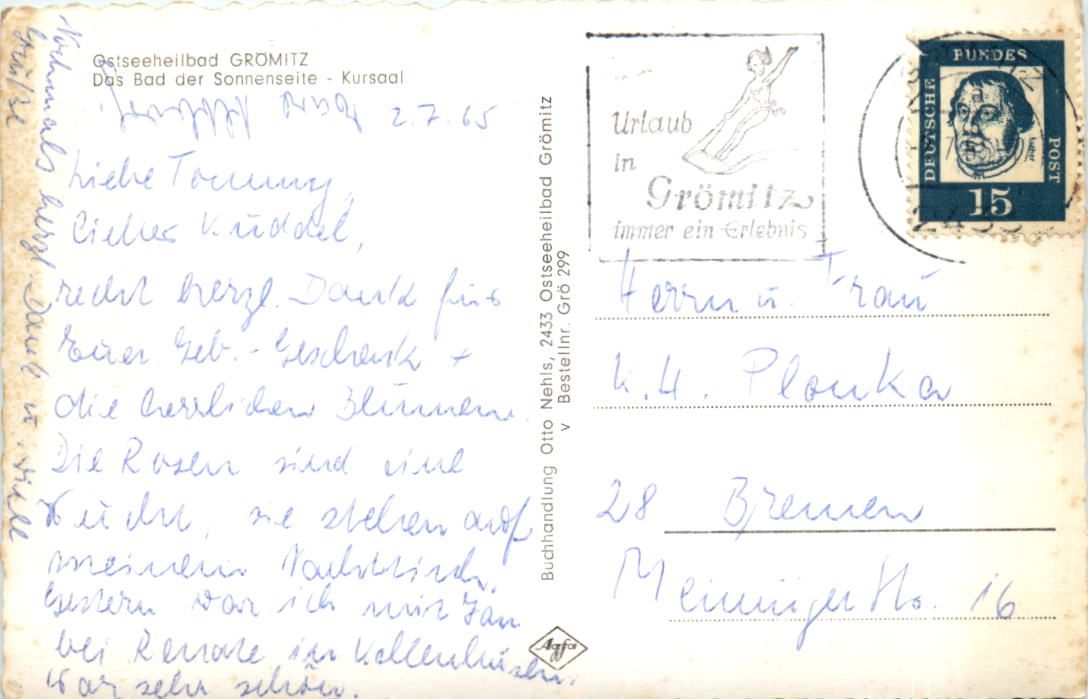 Ostseeheilbad GRÖMITZ
Das Bad der Sonnenseite - Kursaal
2.7.65
Liebe Tommy,
lieber Kuddel,
recht herzl. Dank fürs
Euer Geb.-Geschenk +
die herrlichen Blumen.
Die Rosen sind eine
Wucht, sie stehen auf
meinem Nachttisch.
Gestern war ich mit Jan
bei Renate in Kellenhusen.
War sehr schön.
Nochmals herzl. Dank u. viele
Grüße
Buchhandlung Otto Nehls, 2433 Ostseeheilbad Grömitz
v Bestellnr. Grö 299
Agfa
Urlaub
in
Grömitz
immer ein Erlebnis
DEUTSCHE
BUNDES
POST
Luther
15
2433
Herrn u. Frau
K.H. Plonka
28 Bremen
Meininger Str. 16